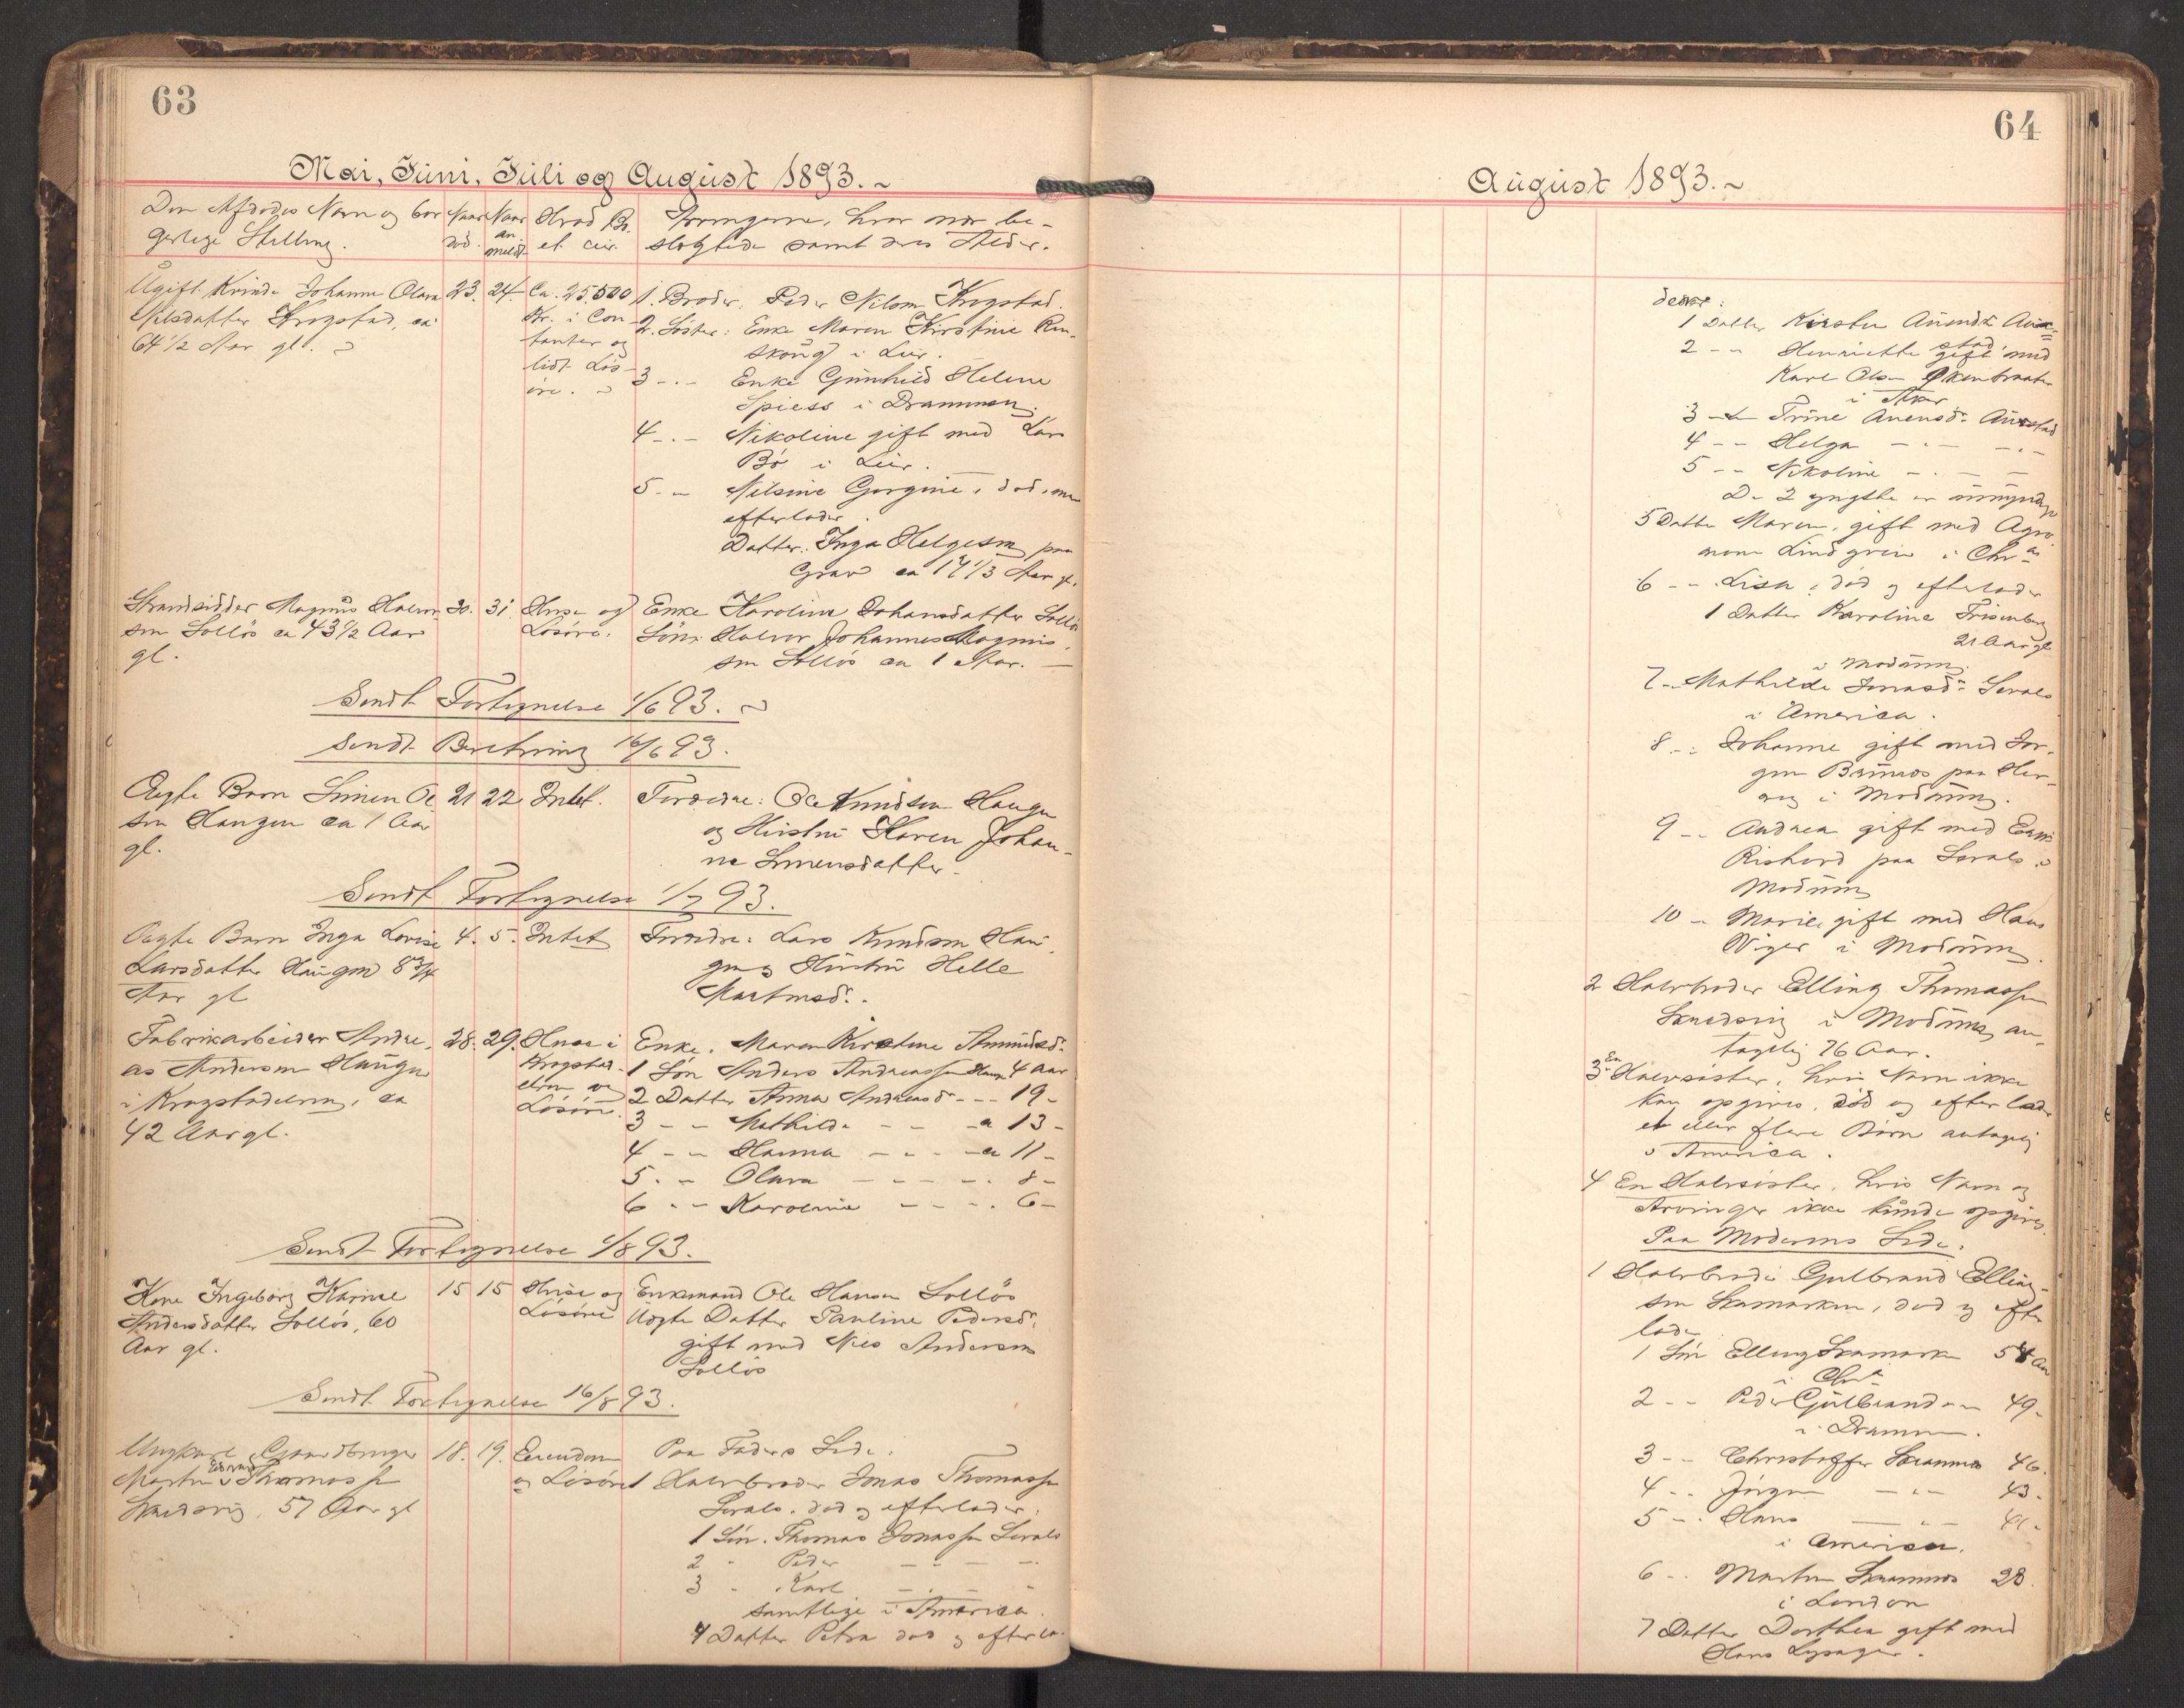 63
Mai, Juni, Juli og August 1893.
Den Afdødes Navn og bor
gerlige Stilling.
Naar
død.
Naar
an
meldt
Hvad Bo.
et eier
Arvingerne, hvor nær be-
slægtede samt deres Alder.
Ugift Kvinde Johanne Olava
Nilsdatter Krogstad, ca
64 1/2 Aar gl.
23.
24.
Ca. 25,500
Kr. i Con
tanter og
lidt Løs-
øre.
1. Broder, Peder Nilsen Krogstad.
2. Søster: Enke Maren Kirstine Ren-
skoug i Lier.
3 - . - Enke Gunhild Helene
Spiess i Drammen.
4 - . - Nikoline gift med Lars
Bø i Lier.
5 - .. Nilsine Gurgine, død, men
efterlader
Datter: Inga Helgesen paa
Grav ca 17 1/3 Aar gl.
Strandsidder Magnus Halvor
sen Solløs ca 43 1/2 Aar
gl.
30.
31.
Huse og
Løsøre.
Enke Karoline Johansdatter Solløs
Søn: Halvor Johannes Magnus
sen Solløs ca 1 Aar. —
Sendt Fortegnelse 1/6 93.
Sendt Beretning 16/6 93.
Ægte Barn Simen Ol
sen Haugen ca 1 Aar
gl.
21
22
Intet.
Forældre: Ole Knudsen Haugen
og Hustru Karen Johan-
ne Simensdatter.
Sendt Fortegnelse 1/7 93.
Ægte Barn Inga Lovise
Larsdatter Haugen 8 3/4
Aar gl
4.
5.
Intet
Forældre: Lars Knudsen Hau
gen og Hustru Helle
Martinsd.
Fabrikarbeider Andre
as Andersen Haugen
i Krogstadelven, ca
42 Aar gl.
28.
29.
Huse i
Krogstad-
elven og
Løsøre.
Enke. Maren Kirstine Amundsd.
1 Søn Anders Andreassen Haug 4 Aar
2 Datter Anna Andreasd - - - 19 -
3 - - Mathilde - - - 13 -
4 - - Hanna - - - 11 -
5. - Olava - - - 8 -
6 - - Karoline - - - 6 -
Sendt Fortegnelse 1/8 93.
Kone Ingeborg Karine
Andersdatter Solløs, 60
Aar gl.
15
15
Huse og
Løsøre
Enkemand Ole Hansen Solløs
Uægte Datter Pauline Pedersd.
gift med Nils Andersen
Solløs
Sendt Fortegnelse 16/8 93.
Ungkarl Gaardbruger
Martin Edvard Thomassen
57 Aar gl
18.
19.
Eiendom
og Løsøre
Paa Faders Side.
1 Halvbroder Jonas Thomassen
død og efterlader:
1 Søn. Thomas Jonassen
2 - Peder - - -
3 - Karl - - -
samtlige i America.
4 Datter Petra død og efterla-
64
August 1893.
der:
1 Datter Kirsten Auensd. Au-
stad
2 - - Henriette gift med
Karl Olsen
i Aker
3 - - Trine Auensd. Austad
4 - - Helga - . - - . -
5 - - Nikoline - . - -
De 2 yngste er umyndige
5 Datter Maren, gift med Agro
nom Lindgren i Chr.a
6 - - Lisa, død og efterlader
1 Datter Karoline
21 Aar gl
i Modum
7 - Mathilde Jonasd.
i America.
8 - : Johanne gift med Jør-
gen paa Her-
i Modum.
9 - - Andrea gift med
paa
Modum
10 - Marie, gift med Hans
i Modum.
2 Halvbroder Elling Thomassen
i Modum, an-
tagelig 76 Aar.
3 En Halvsøster, hvis Navn ikke
kan opgives, død og efterlader
et eller flere Børn antagelig
i America.
4 En Halvsøster, hvis Navn og
Arvinger ikke kunde opgives.
Paa Moderens Side.
1 Halvbroder Gulbrand Elling-
sen død og efter
lader
1 Søn Elling 54 Aar
i Chr.a
2 - - Peder Gulbrandsen 49 -
i Drammen.
3 - - Christoffer 46.
4 - - Jørgen - . - 43 -
5 - . Hans - . - 41 -
i America.
6 - . Martin 28.
i London
7 Datter Dorthea gift med
Hans Lysager.